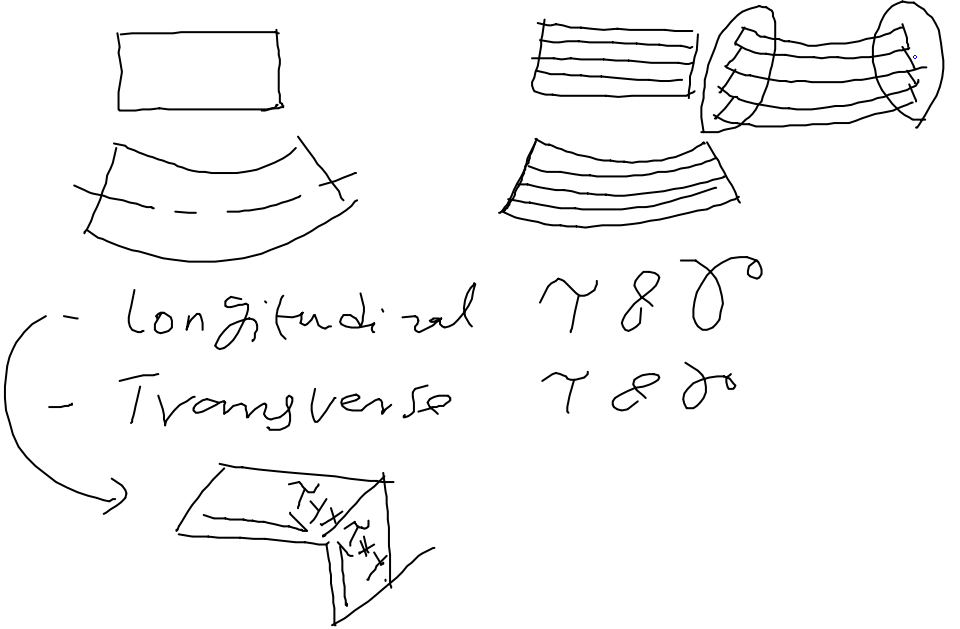 - Longitudinal τ & γ
- Transverse τ & γ
τyx
τxy